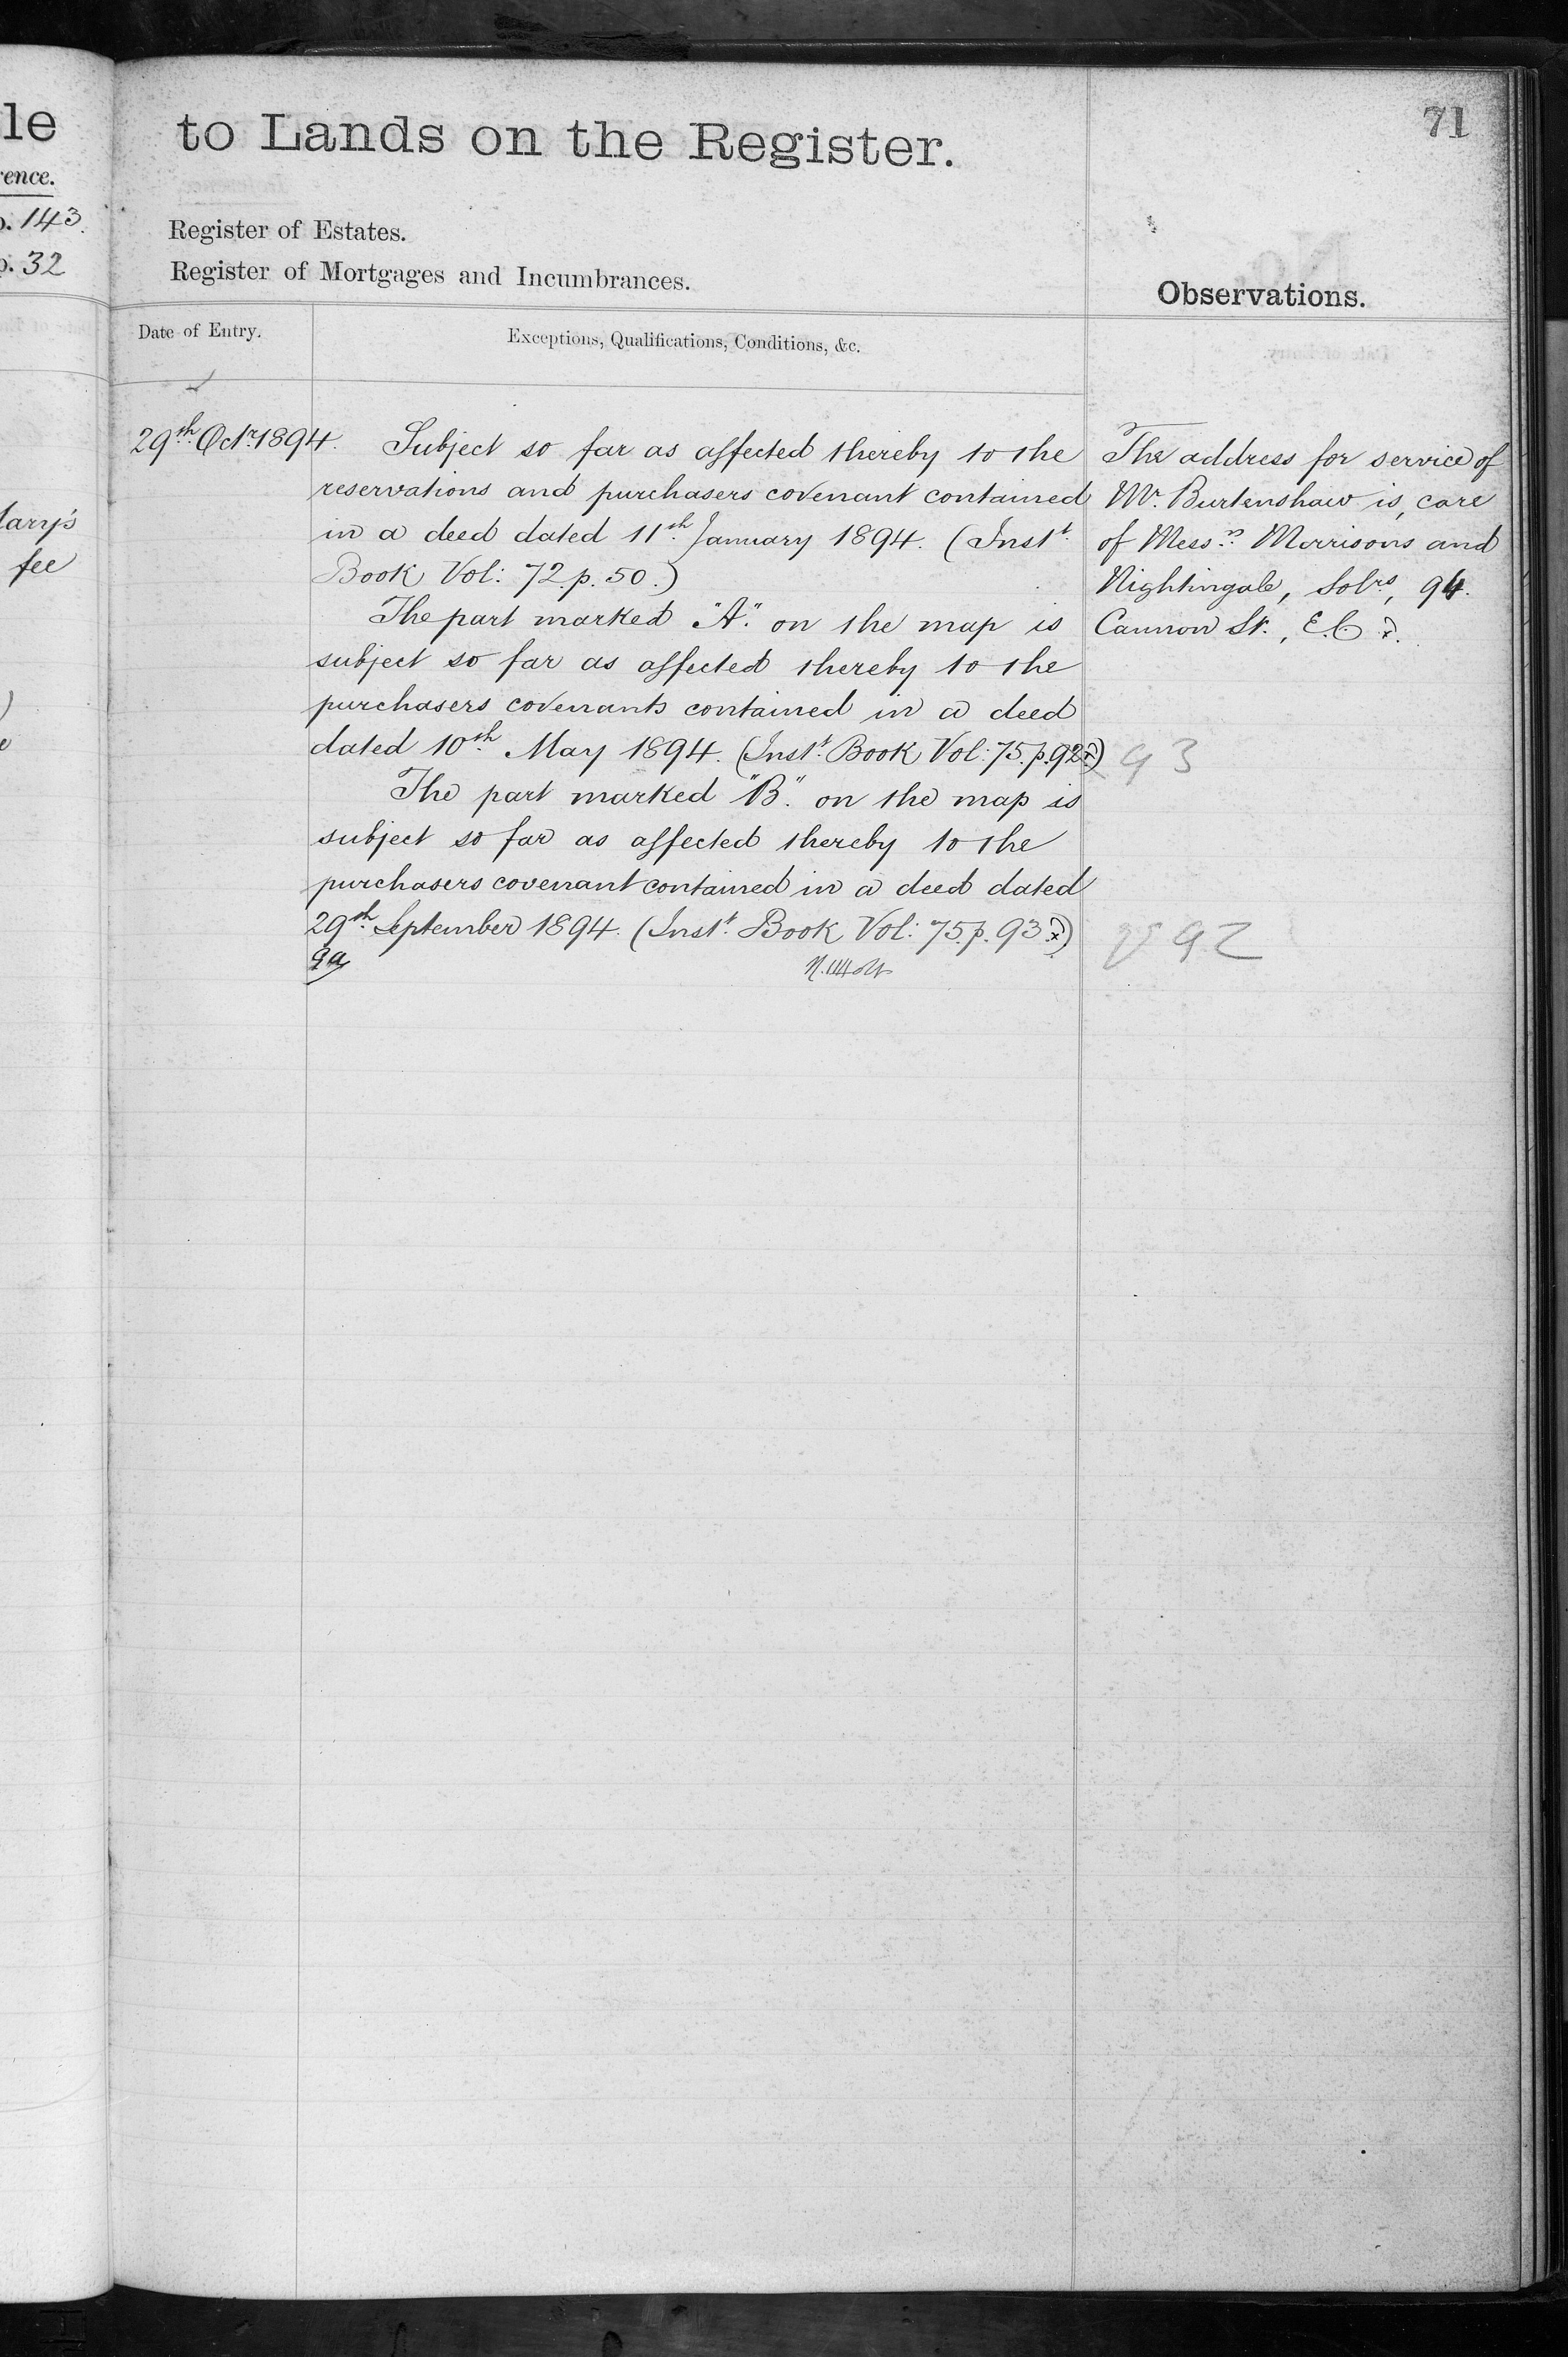 le
rence.
p. 143.
p. 32
lary's
fee
71
to Lands on the Register.
Register of Estates.
Register of Mortgages and Incumbrances.
Observations.
Date of Entry.
Exceptions, Qualifications, Conditions, &c.
29th Octr 1894.
Subject so far as affected thereby to the
reservations and purchasers covenant contained
in a deed dated 11th January 1894. (Instt
Book Vol: 72. p. 50.)
The part marked "A". on the map is
subject so far as affected thereby to the
purchasers covenants contained in a deed
dated 10th May 1894. (Instt Book Vol: 75. p. 92.)
The part marked "B". on the map is
subject so far as affected thereby to the
purchasers covenant contained in a deed dated
29th September 1894. (Instt Book Vol: 75. p. 93.)
The address for service of
Mr. Burtenshaw is, care
of Messrs Morrisons and
Nightingale, Solrs, 94.
Cannon St., E.C.
93
92